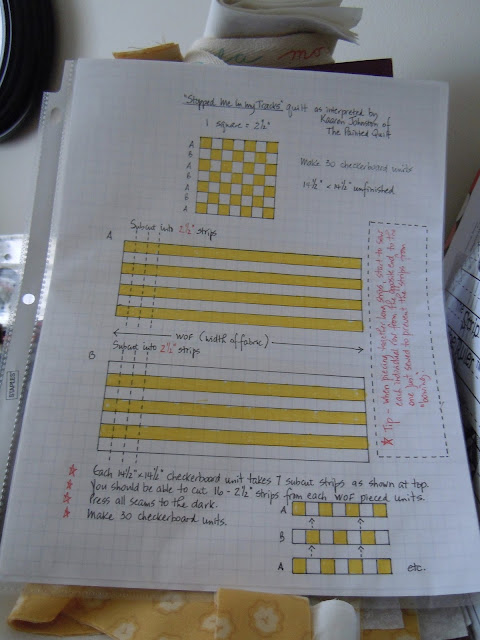 mo
"Stopped Me In my Tracks" quilt as interpreted by
Kaaren Johnston of
The Painted Quilt
1 square = 2½"
A
B
A
B
A
B
A
Make 30 checkerboard units
14½" x 14½" unfinished
Subcut into 2½" strips
A
WOF (width of fabric)
Subcut into 2½" strips
B
★ Tip - When piecing together long strips, start to sew
each individual row from the opposite end to the
one just sewed to prevent the strips from
"bowing".
★ Each 14½" x 14½" checkerboard unit takes 7 subcut strips as shown at top.
★ You should be able to cut 16 - 2½" strips from each WOF pieced units.
★ Press all seams to the dark.
★ Make 30 checkerboard units.
A
B
A
etc.
STAPLES